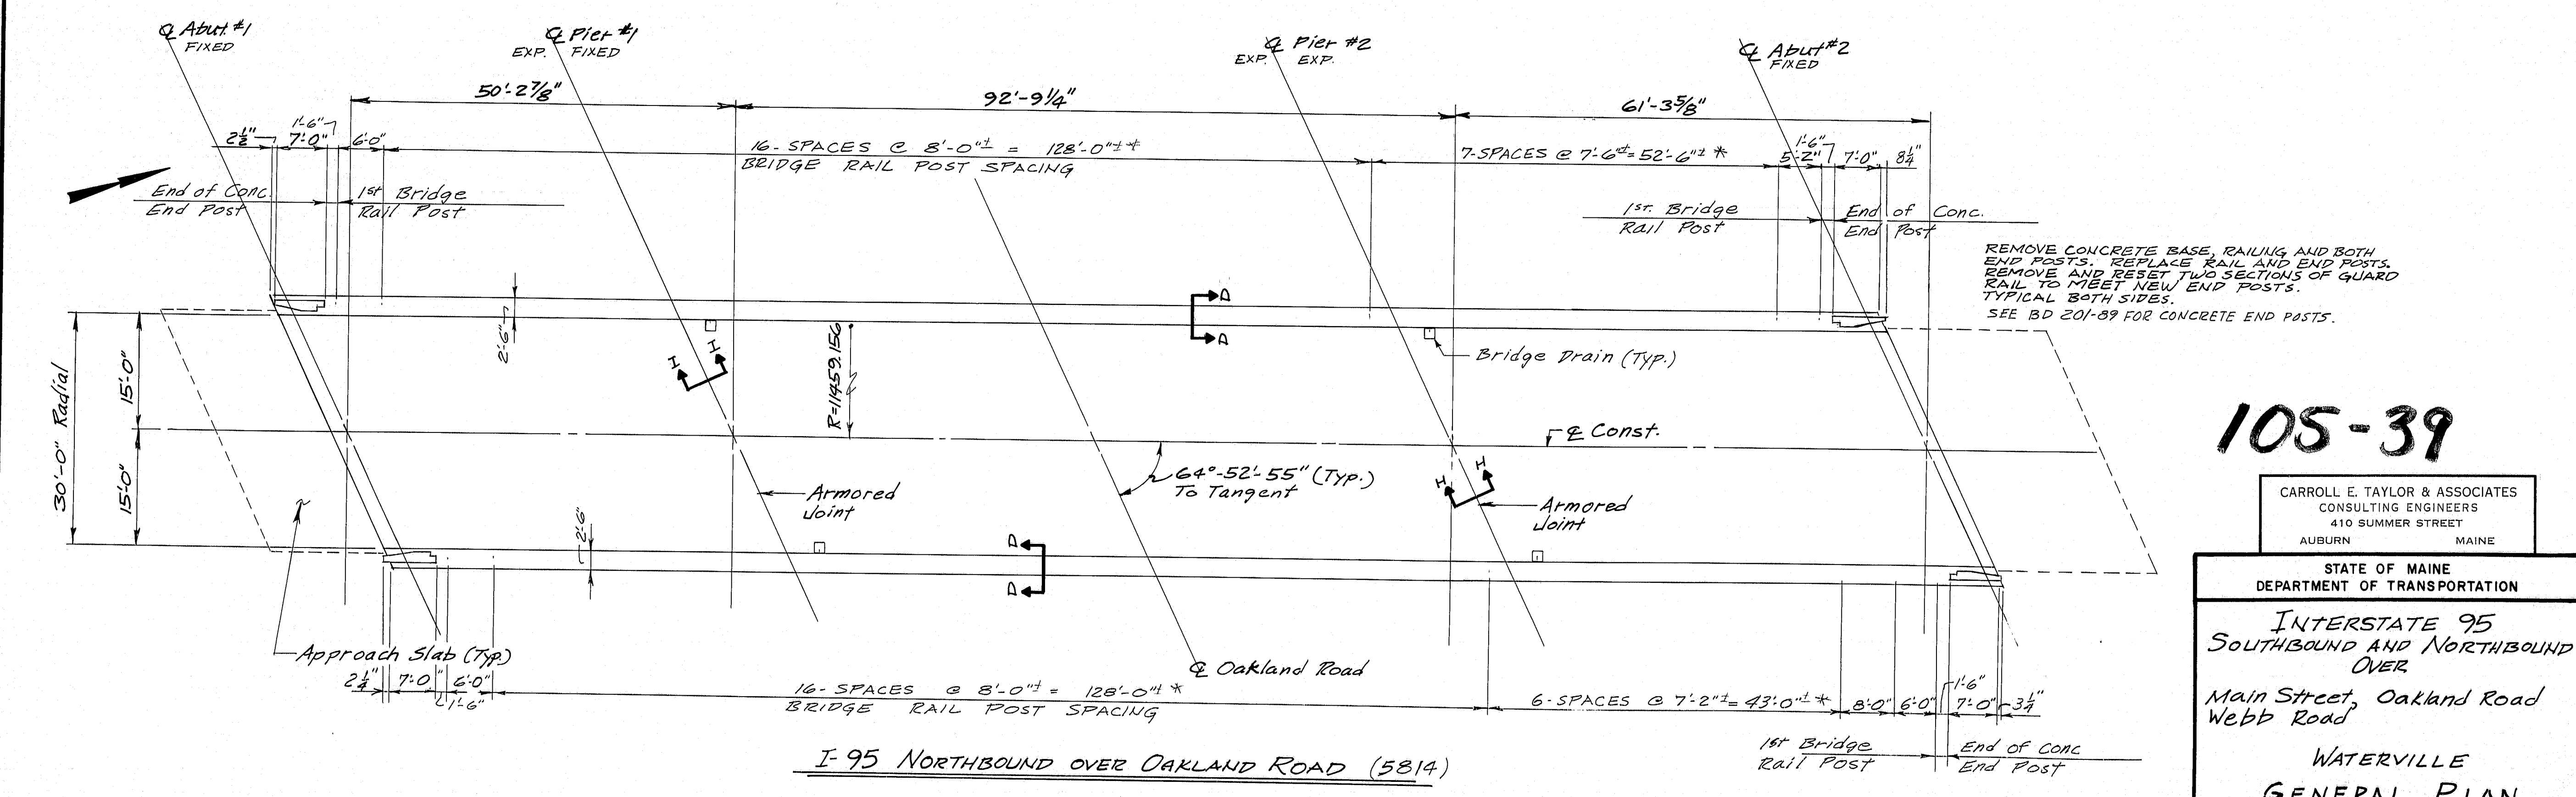 ℄ Abut. #1
FIXED
℄ Pier #1
EXP. FIXED
℄ Pier #2
EXP. EXP.
℄ Abut #2
FIXED
50'-2⅞"
92'-9¼"
61'-3⅝"
2½"
7'-0"
1'-6"
6'-0"
16- SPACES @ 8'-0"± = 128'-0"± *
BRIDGE RAIL POST SPACING
7-SPACES @ 7'-6"± = 52'-6"± *
5'-2"
1'-6"
7'-0"
8¼"
End of Conc.
End Post
1st Bridge
Rail Post
1st. Bridge
Rail Post
End of Conc.
End Post
REMOVE CONCRETE BASE, RAILING AND BOTH
END POSTS. REPLACE RAIL AND END POSTS.
REMOVE AND RESET TWO SECTIONS OF GUARD
RAIL TO MEET NEW END POSTS.
TYPICAL BOTH SIDES.
SEE BD 201-89 FOR CONCRETE END POSTS.
2'-6"
D
D
I
I
R=11459.156
Bridge Drain (Typ.)
30'-0" Radial
15'-0"
15'-0"
℄ Const.
64°-52'-55" (Typ.)
To Tangent
H
H
Armored
Joint
Armored
Joint
2'-6"
D
D
Approach Slab (Typ.)
℄ Oakland Road
2¼"
7'-0"
1'-6"
6'-0"
16- SPACES @ 8'-0"± = 128'-0"± *
BRIDGE RAIL POST SPACING
6-SPACES @ 7'-2"± = 43'-0"± *
8'-0"
6'-0"
1'-6"
7'-0"
3¼"
1st Bridge
Rail Post
End of Conc
End Post
I-95 NORTHBOUND OVER OAKLAND ROAD (5814)
105-39
CARROLL E. TAYLOR & ASSOCIATES
CONSULTING ENGINEERS
410 SUMMER STREET
AUBURN MAINE
STATE OF MAINE
DEPARTMENT OF TRANSPORTATION
INTERSTATE 95
SOUTHBOUND AND NORTHBOUND
OVER
Main Street, Oakland Road
Webb Road
WATERVILLE
GENERAL PLAN